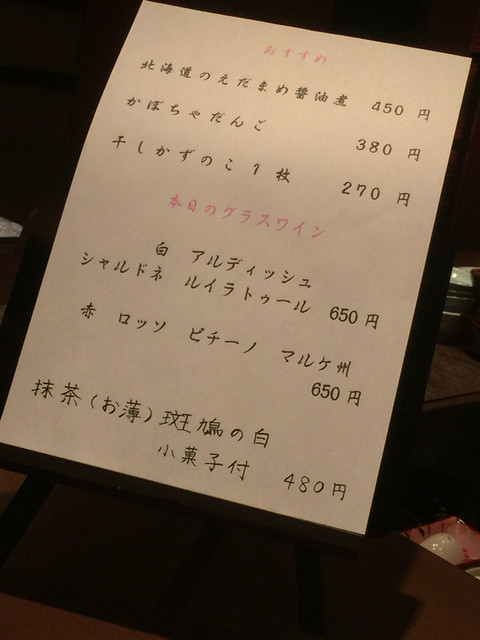 おすすめ
北海道のえだまめ醤油煮 450 円
かぼちゃだんご 380 円
干しかずのこ 1 枚 270 円
本日のグラスワイン
白 アルディッシュ
シャルドネ ルイラトゥール 650 円
赤 ロッソ ピチーノ マルケ州
650 円
抹茶(お薄)斑鳩の白
小菓子付 480 円